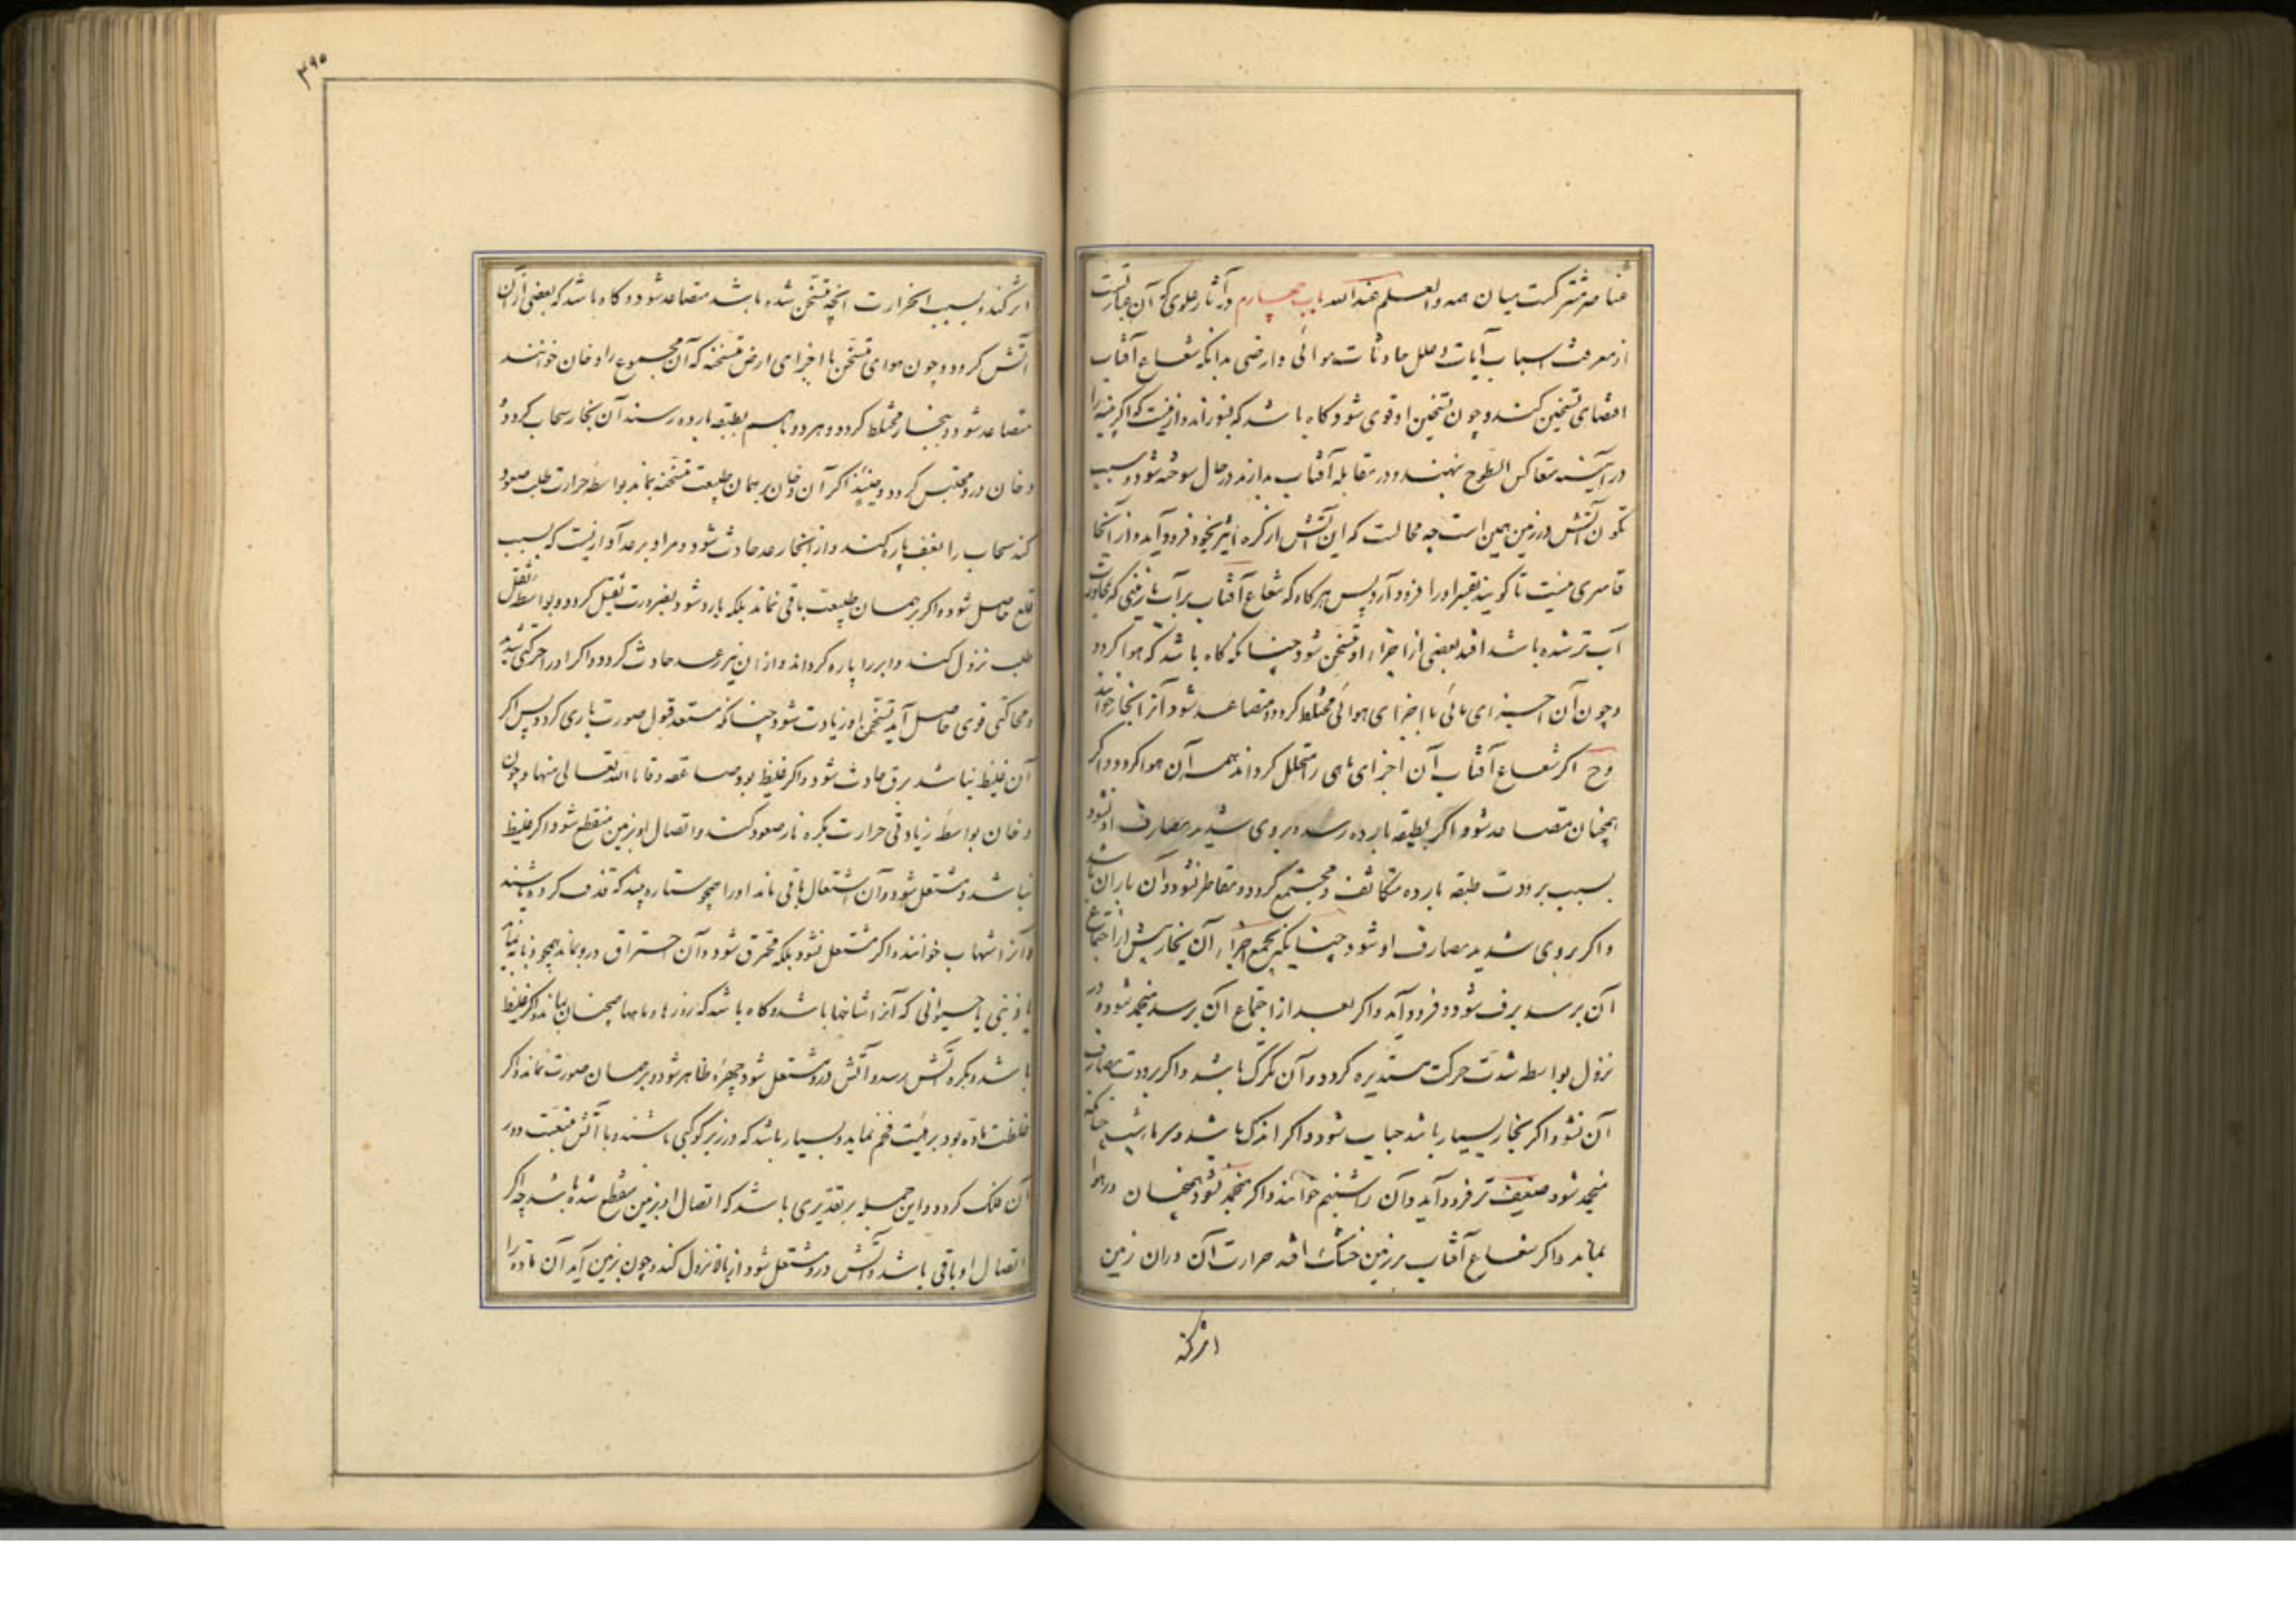 عناصر مشترکست میان همه والعلم عند الله باب چهارم در آثار علوی که آن عبارتست
از معرفت اسباب آیات و علل حادثات هوائی و ارضی بدانکه شعاع آفتاب
اقتضای تسخین کند و چون تسخین او قوی شود گاه باشد که بسوزاند و ازینست که اگر پنبه را
در آینه متعاکس السطوح نهند و در مقابله آفتاب بدارند در حال سوخته شود و سبب
تکون آتش در زمین همین است چه محالست که این آتش از کره اثیر بخود فرود آید و از آنجا
قاسری نیست تا گویند بقسر او را فرود آرد پس هرگاه که شعاع آفتاب بر آب یا زمینی که بمجاورت
آب تر شده باشد افتد بعضی از اجزاء او متسخن شود چنانکه گاه باشد که هوا گردد
و چون آن اجزای مائی با اجزای هوائی مختلط گردد و متصاعد شود آنرا بخار خوانند
و ح اگر شعاع آفتاب آن اجزای مای را متحلل گرداند همه آن هوا گردد و اگر
همچنان متصاعد شود و اگر بطبقه بارده رسد و بردی شدید مصادف او نشود
بسبب برودت طبقه بارده متکاثف و مجتمع گردد و متقاطر شود و آن باران باشد
و اگر بردی شدید مصادف او شود چنانکه بجمیع اجزاء آن بخار پیش از اجتماع
آن برسد برف شود و فرود آید و اگر بعد از اجتماع آن برسد منجمد شود و در
نزول بواسطه شدت حرکت مستدیره گردد و آن تگرگ باشد و اگر برودت مصادف
آن نشود اگر بخار بسیار باشد ضباب شود و اگر اندک باشد و سرما شب چنانکه
منجمد شود ضعیف تر فرود آید و آن را شبنم خوانند و اگر منجمد نشود همچنان در هوا
بماند و اگر شعاع آفتاب بر زمین خشک افتد حرارت آن در آن زمین
اثر کند
۳۹۵
اثر کند و بسبب آن حرارت آنچه متسخن شده باشد متصاعد شود و گاه باشد که بعضی از آن
آتش گردد و چون هوای متسخن با اجزای ارض متسخنه که آن مجموع را دخان خوانند
متصاعد شود و ببخار مختلط گردد و هر دو باهم بطبقه بارده رسند آن بخار سحاب گردد و
دخان در و محتبس گردد و حینئذ اگر آن دخان بر همان طبیعت متسخنه بماند بواسطه حرارت طلب صعود
کند سحاب را بعنف پاره کند و از آنجا رعد حادث شود و مراد برعد آوازیست که بسبب
قلع حاصل شود و اگر بر همان طبیعت باقی نماند بلکه بارد شود بضرورت ثقیل گردد و بواسطه ثقل
طلب نزول کند و ابر را پاره گرداند و از آن نیز رعد حادث گردد و اگر او را حرکتی شدید
و محاکتی قوی حاصل آید تسخن او زیادت شود چنانکه مستعد قبول صورت ناری گردد پس اگر
آن غلیظ نباشد برق حادث شود و اگر غلیظ بود صاعقه وقانا الله تعالی منها و چون
دخان بواسطه زیادتی حرارت بکره نار صعود کند و اتصال او بزمین منقطع شود اگر غلیظ
نباشد و مشتعل شود و آن اشتعال باقی ماند او را همچو ستاره بیند که قذف کرده باشند
و آنرا شهاب خوانند و اگر مشتعل نشود بلکه محترق شود و آن احتراق درو بماند همچو ذنابه
یا ذنبی یا حیوانی که آنرا شاخها باشد و گاه باشد که روزها و ماهها همچنان بماند و اگر غلیظ
باشد و بکره آتش رسد و آتش درو مشتعل شود چهره ظاهر شود و بر همان صورت نماند و اگر
غلظت ماده بود بر هیئت فحم نماید و بسیار باشد که در زیر کوکبی باشند و با آتش متبعت دور
آن فلک گردد و این جمله بر تقدیری باشد که اتصال او بزمین منقطع شده باشد چه اگر
اتصال او باقی باشد و آتش درو مشتعل شود از بالا نزول کند و چون بزمین آید آن ماده را